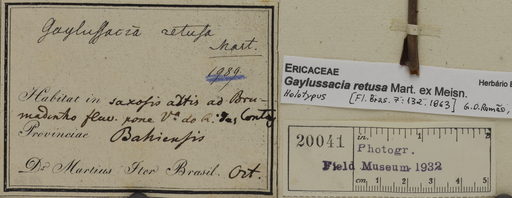 Gaylussacia retusa
Mart.
1989.
Habitat in saxosis altis ad Bru-
madinho fluv. pone Vª do R. das Contas
Provinciae Bahiensis
Dr Martius Iter Brasil. Oct.
ERICACEAE
Gaylussacia retusa Mart. ex Meisn.
Herbário
Holotypus [Fl. Bras. 7: 132. 1863] G.O. Romão,
20041
Photogr.
Field Museum 1932
in. 1
cm 1 2 3 4 5